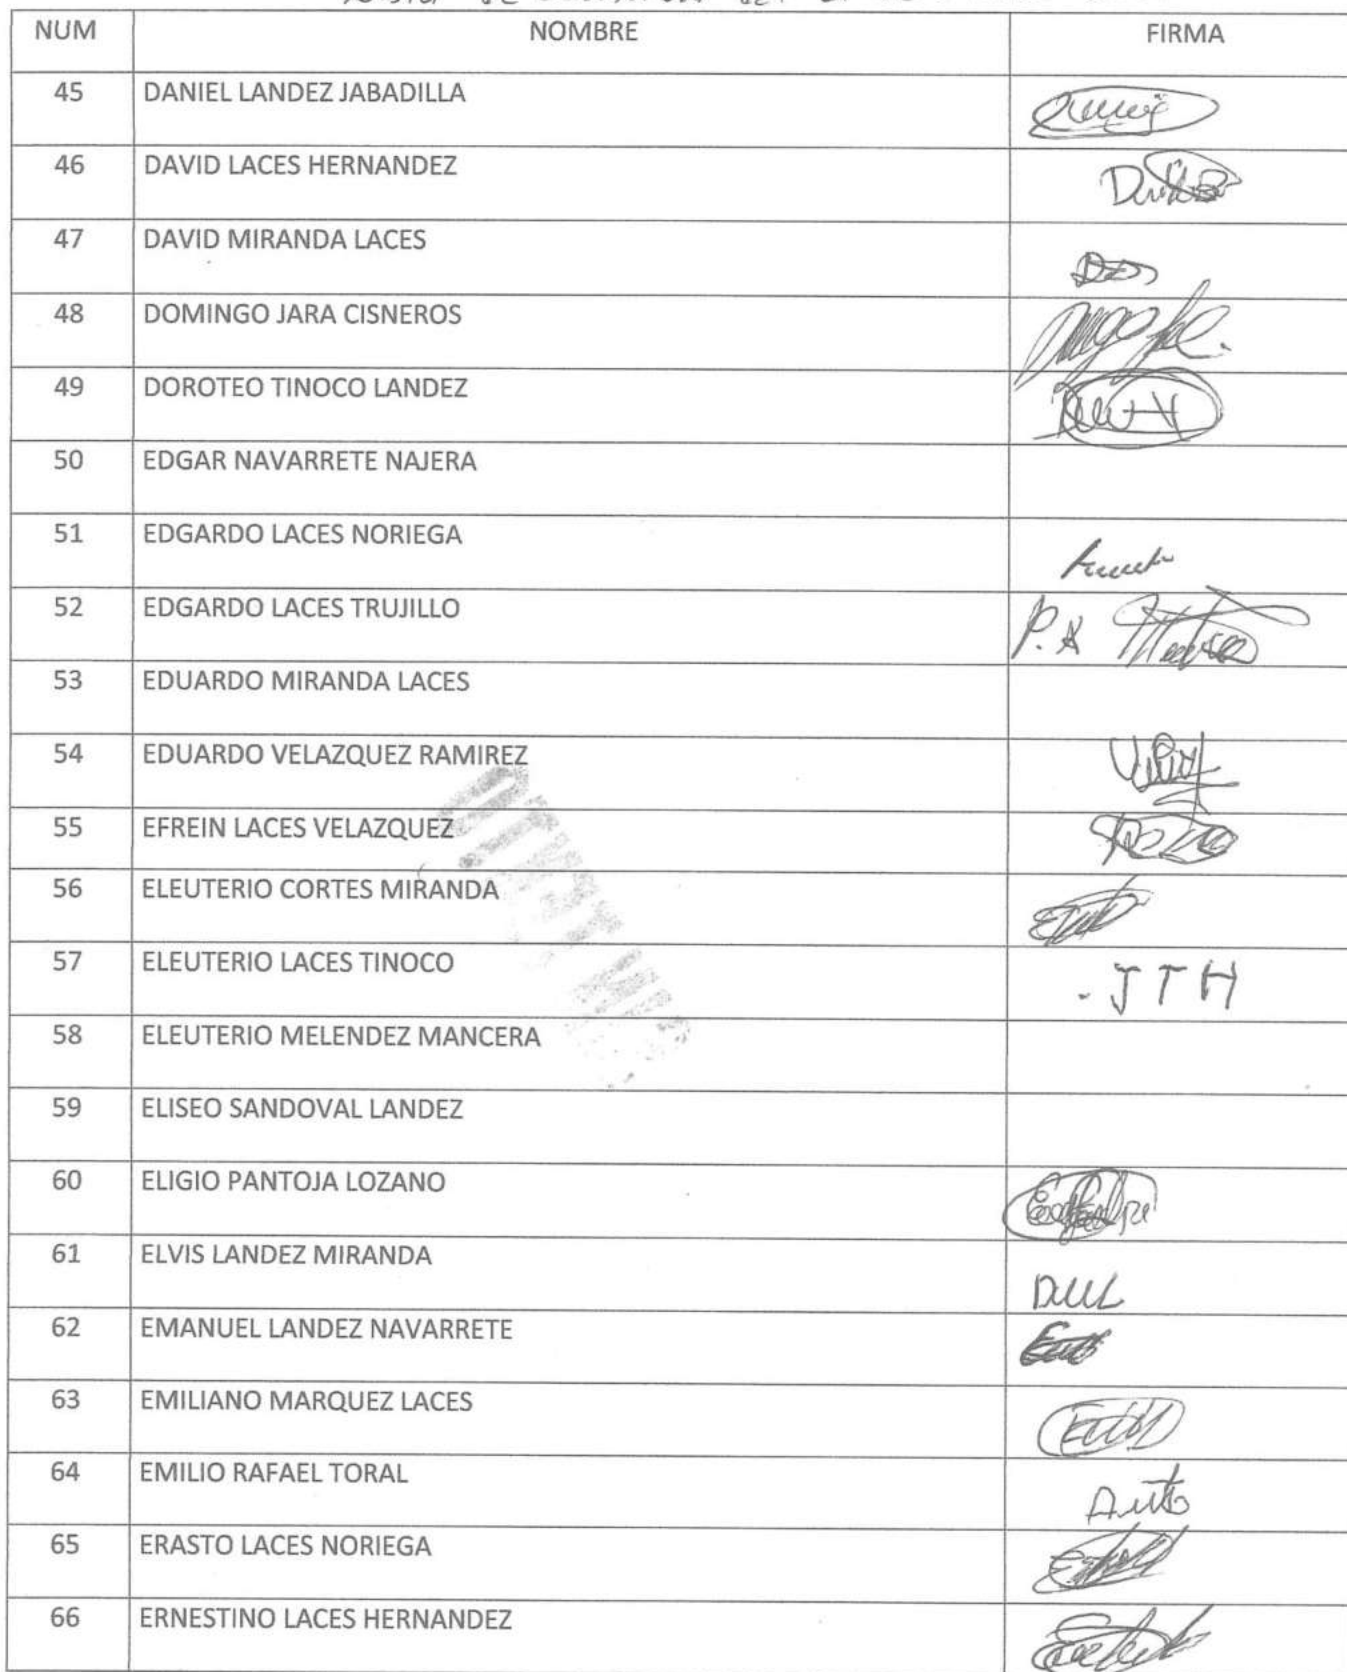 NUM NOMBRE FIRMA
45 DANIEL LANDEZ JABADILLA
46 DAVID LACES HERNANDEZ
47 DAVID MIRANDA LACES
48 DOMINGO JARA CISNEROS
49 DOROTEO TINOCO LANDEZ
50 EDGAR NAVARRETE NAJERA
51 EDGARDO LACES NORIEGA
52 EDGARDO LACES TRUJILLO P.A
53 EDUARDO MIRANDA LACES
54 EDUARDO VELAZQUEZ RAMIREZ
55 EFREIN LACES VELAZQUEZ
56 ELEUTERIO CORTES MIRANDA
57 ELEUTERIO LACES TINOCO JTH
58 ELEUTERIO MELENDEZ MANCERA
59 ELISEO SANDOVAL LANDEZ
60 ELIGIO PANTOJA LOZANO
61 ELVIS LANDEZ MIRANDA
62 EMANUEL LANDEZ NAVARRETE
63 EMILIANO MARQUEZ LACES
64 EMILIO RAFAEL TORAL
65 ERASTO LACES NORIEGA
66 ERNESTINO LACES HERNANDEZ